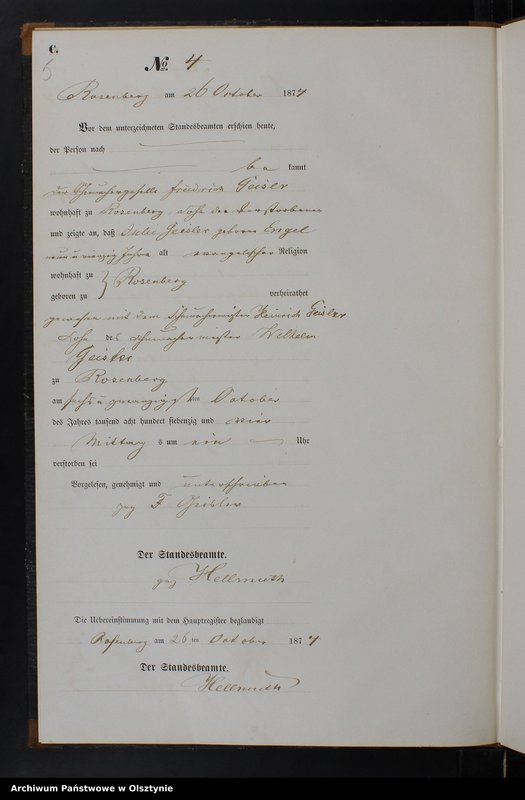 C.
5
№ 4
Rosenberg am 26 October 1874
Vor dem unterzeichneten Standesbeamten erschien heute,
der Person nach
be kannt
der Schuhmachergeselle Friedrich Geisler
wohnhaft zu Rosenberg Sohn der Verstorbenen
und zeigte an, daß Julie Geisler geborene Engel
neun u vierzig Jahre alt evangelischer Religion
wohnhaft zu } Rosenberg
geboren zu verheirathet
gewesen mit dem Schuhmachermeister Heinrich Geisler
Sohn des Schuhmachermeister Wilhelm
Geisler
zu Rosenberg
am sechs u zwanzigsten October
des Jahres tausend acht hundert siebenzig und vier
Mittags um ein Uhr
verstorben sei
Vorgelesen, genehmigt und unterschrieben
gez F Geisler
Der Standesbeamte.
gez Hellmuth
Die Uebereinstimmung mit dem Hauptregister beglaubigt
Rosenberg am 26ten October 1874
Der Standesbeamte.
Hellmuth
Archiwum Państwowe w Olsztynie